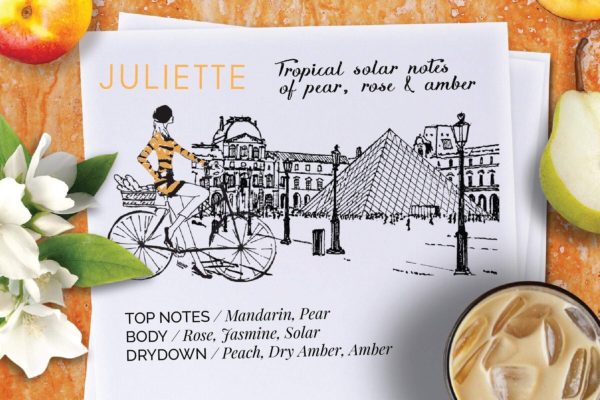 JULIETTE
Tropical solar notes
of pear, rose & amber
TOP NOTES / Mandarin, Pear
BODY / Rose, Jasmine, Solar
DRYDOWN / Peach, Dry Amber, Amber